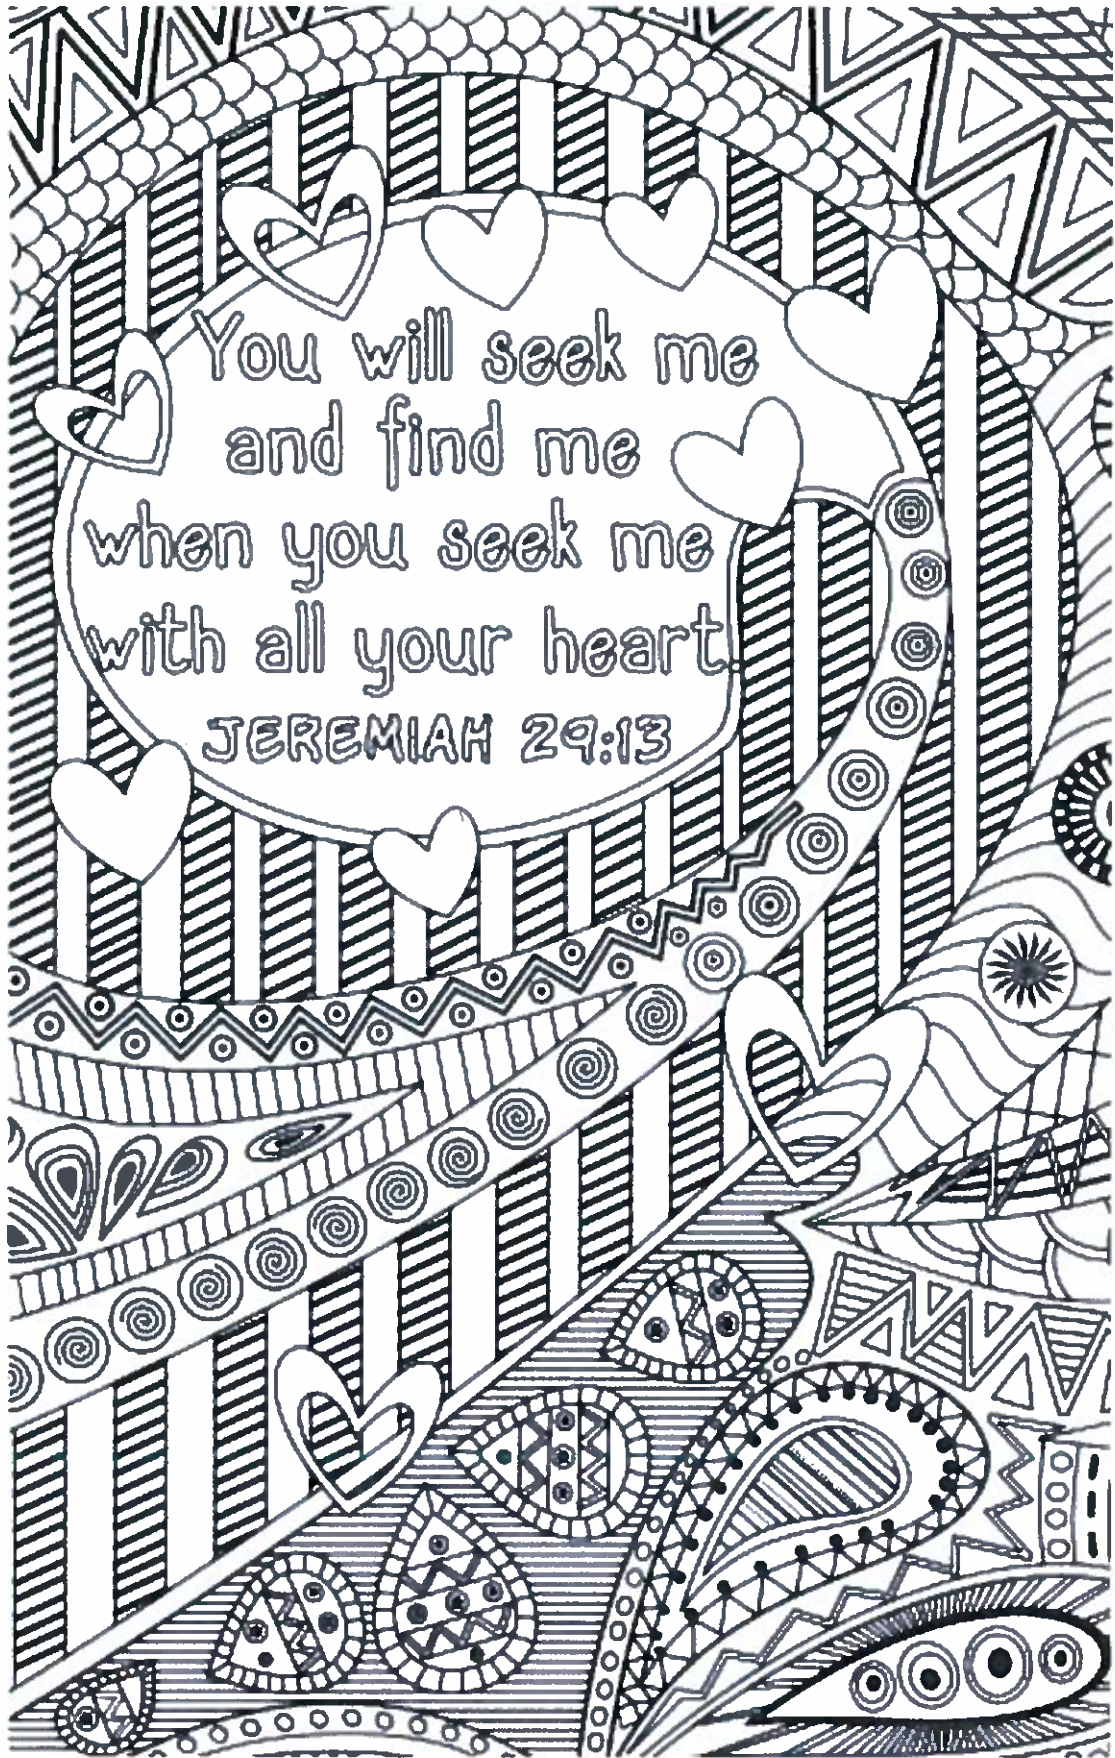 You will seek me
and find me
when you seek me
with all your heart.
JEREMIAH 29:13